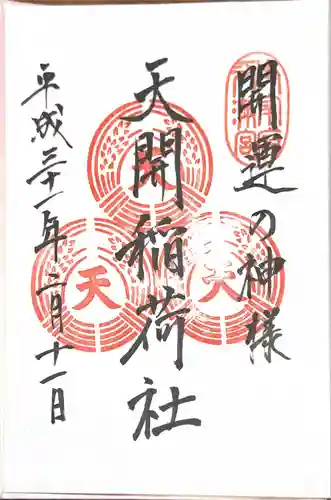 開運の神様
天開稲荷社
平成三十一年二月十一日
天
天